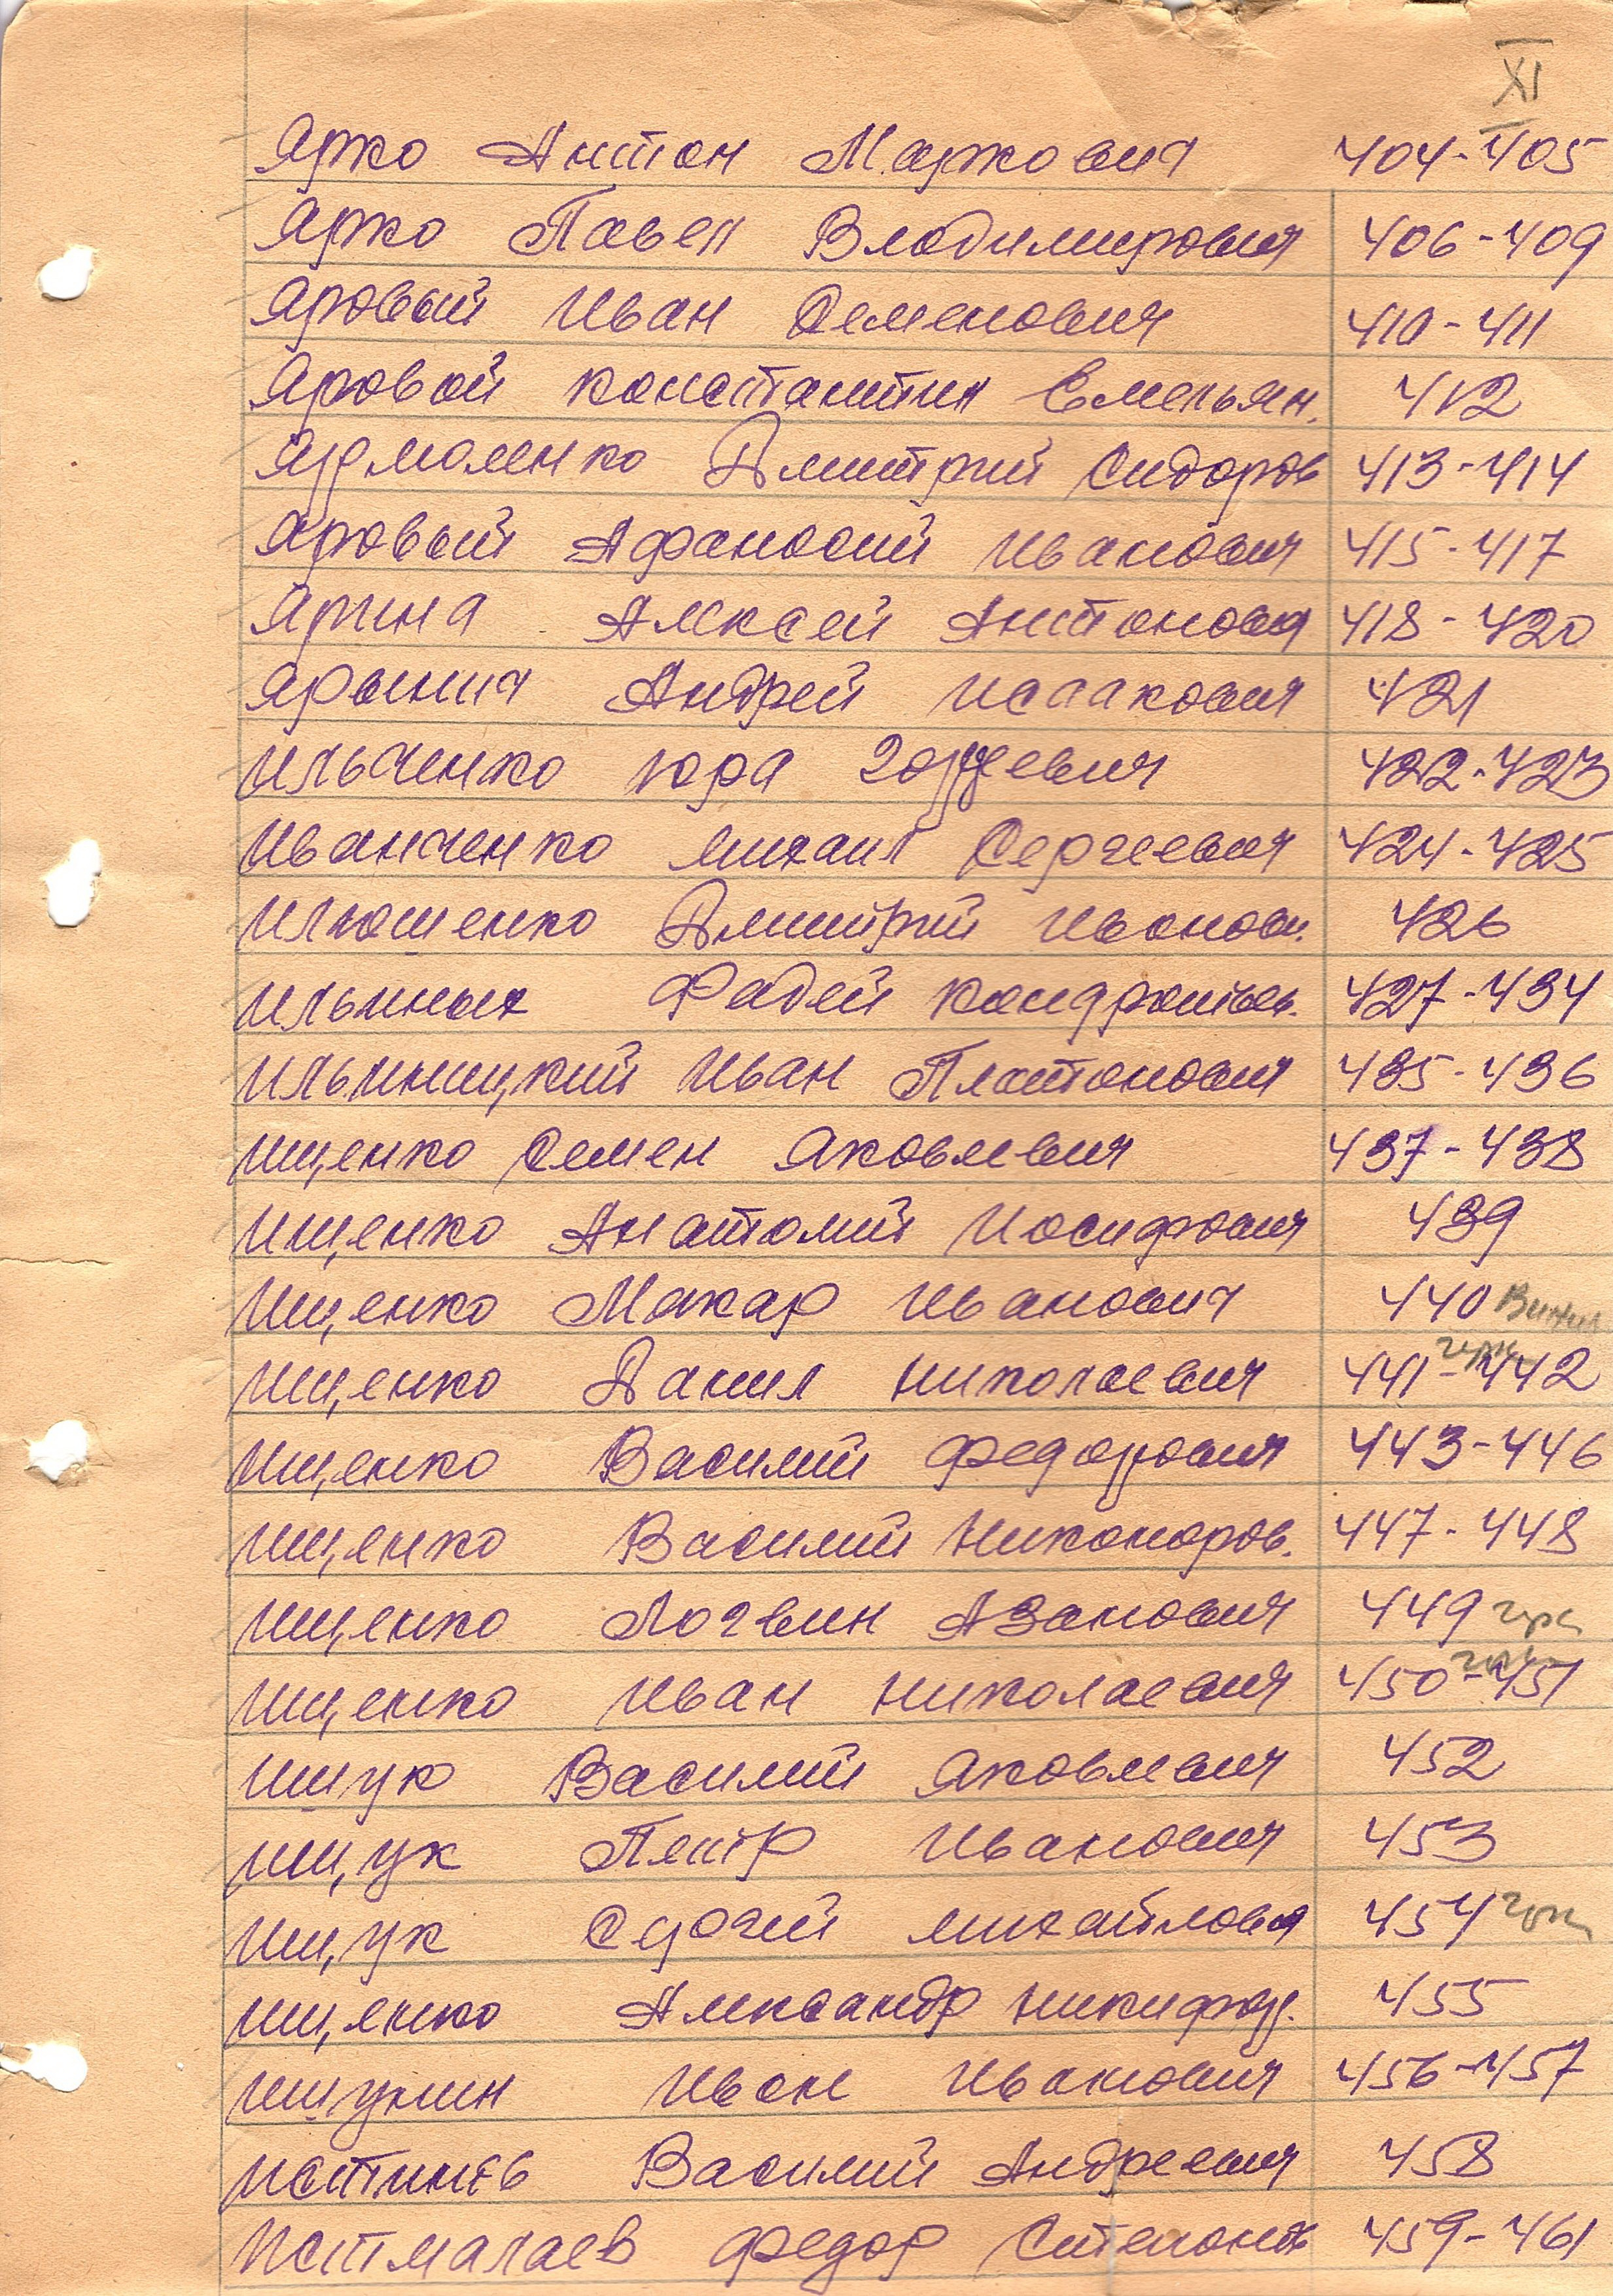 XI
Ярко Антон Маркович 404-405
Ярко Павел Владимирович 406-409
Яровый Иван Семенович 410-411
Яровой Константин Емельян. 412
Ярмоленко Дмитрий Сидоров 413-414
Яровый Афанасий Иванович 415-417
Ярина Алексей Антонович 418-420
Ярынич Андрей Исаакович 421
Ильченко Юра Гордеевич 422-423
Иванченко Михаил Сергеевич 424-425
Ильюшенко Дмитрий Иванови. 426
Ильиных Фадей Кондратьев. 427-434
Ильиницкий Иван Платонович 435-436
Ищенко Семен Яковлевич 437-438
Ищенко Анатолий Иосифович 439
Ищенко Макар Иванович 440
Ищенко Данил Николаевич 441-442
Ищенко Василий Федорович 443-446
Ищенко Василий Никоноров. 447-448
Ищенко Логвин Азанович 449
Ищенко Иван Николаевич 450-451
Ищук Василий Яковлевич 452
Ищук Петр Иванович 453
Ищук Сергей Михайлович 454
Ищенко Александр Никифор. 455
Ищукин Иван Иванович 456-457
Истинев Василий Андреевич 458
Истмалаев Федор Степанов 459-461